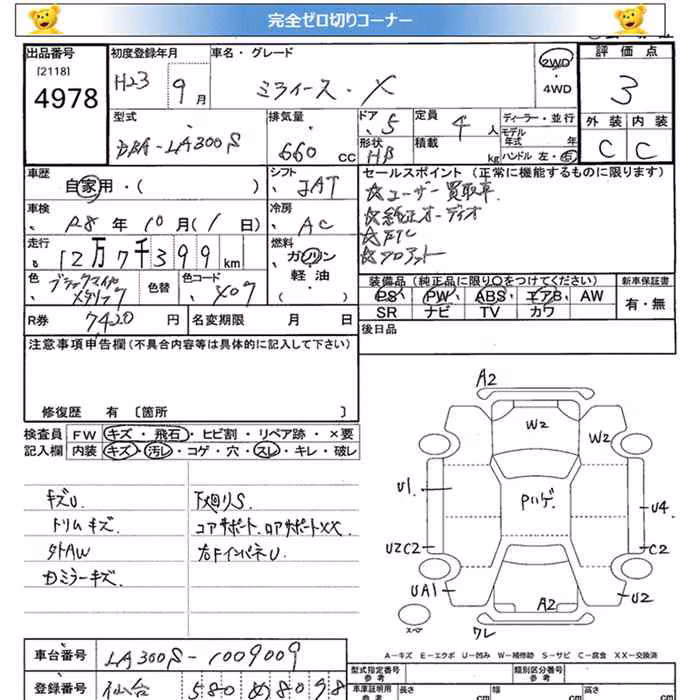 完全ゼロ切りコーナー
出品番号 初度登録年月 車名・グレード 2WD 評価点
[2118] H23 9月 ミライース・X ・4WD 3
4978
型式 排気量 ドア 定員 ディーラー・並行 外装 内装
DBA-LA300S 660CC 5 4人 モデル年式 年 C C
形状 HB 積載 kg ハンドル 左・右
車歴 自家用・( ) シフト IAT セールスポイント(正常に機能するものに限ります)
☆ユーザー買取車
車検 R8年10月(1日) 冷房 AC ☆純正オーディオ
☆ETC
走行 12万7千399km 燃料 ガソリン ☆フロアマット
軽・油
・( )
色 ブラックマイカメタリック 色替 色コード X07 装備品(純正品に限り○をつけてください) 新車保証書
PS PW ABS エアB AW 有・無
R券 7420円 名変期限 月 日 SR ナビ TV カワ
注意事項申告欄(不具合内容等は具体的に記入して下さい) 後日品
修復歴 有 〔箇所 〕
検査員 FW キズ・飛石・ヒビ割・リペア跡・×要
記入欄 内装 キズ・汚レ・コゲ・穴・スレ・キレ・破レ
キズU 下廻りS.
トリムキズ. コアサポート、ロアサポートXX.
外AW 右FインパネU.
ミラーキズ.
A2
W2 W2
U1 Pハゲ U4
UZC2 C2
UA1 A2 U2
スペア クレ
A-キズ E-エクボ U-凹み W-補修跡 S-サビ C-腐食 XX-交換済
車台番号 LA300S-1009009 型式指定番号 参考 類別区分番号 参考
登録番号 仙台 580 め 8098 車庫証明用 参考 長さ cm 幅 cm 高さ cm